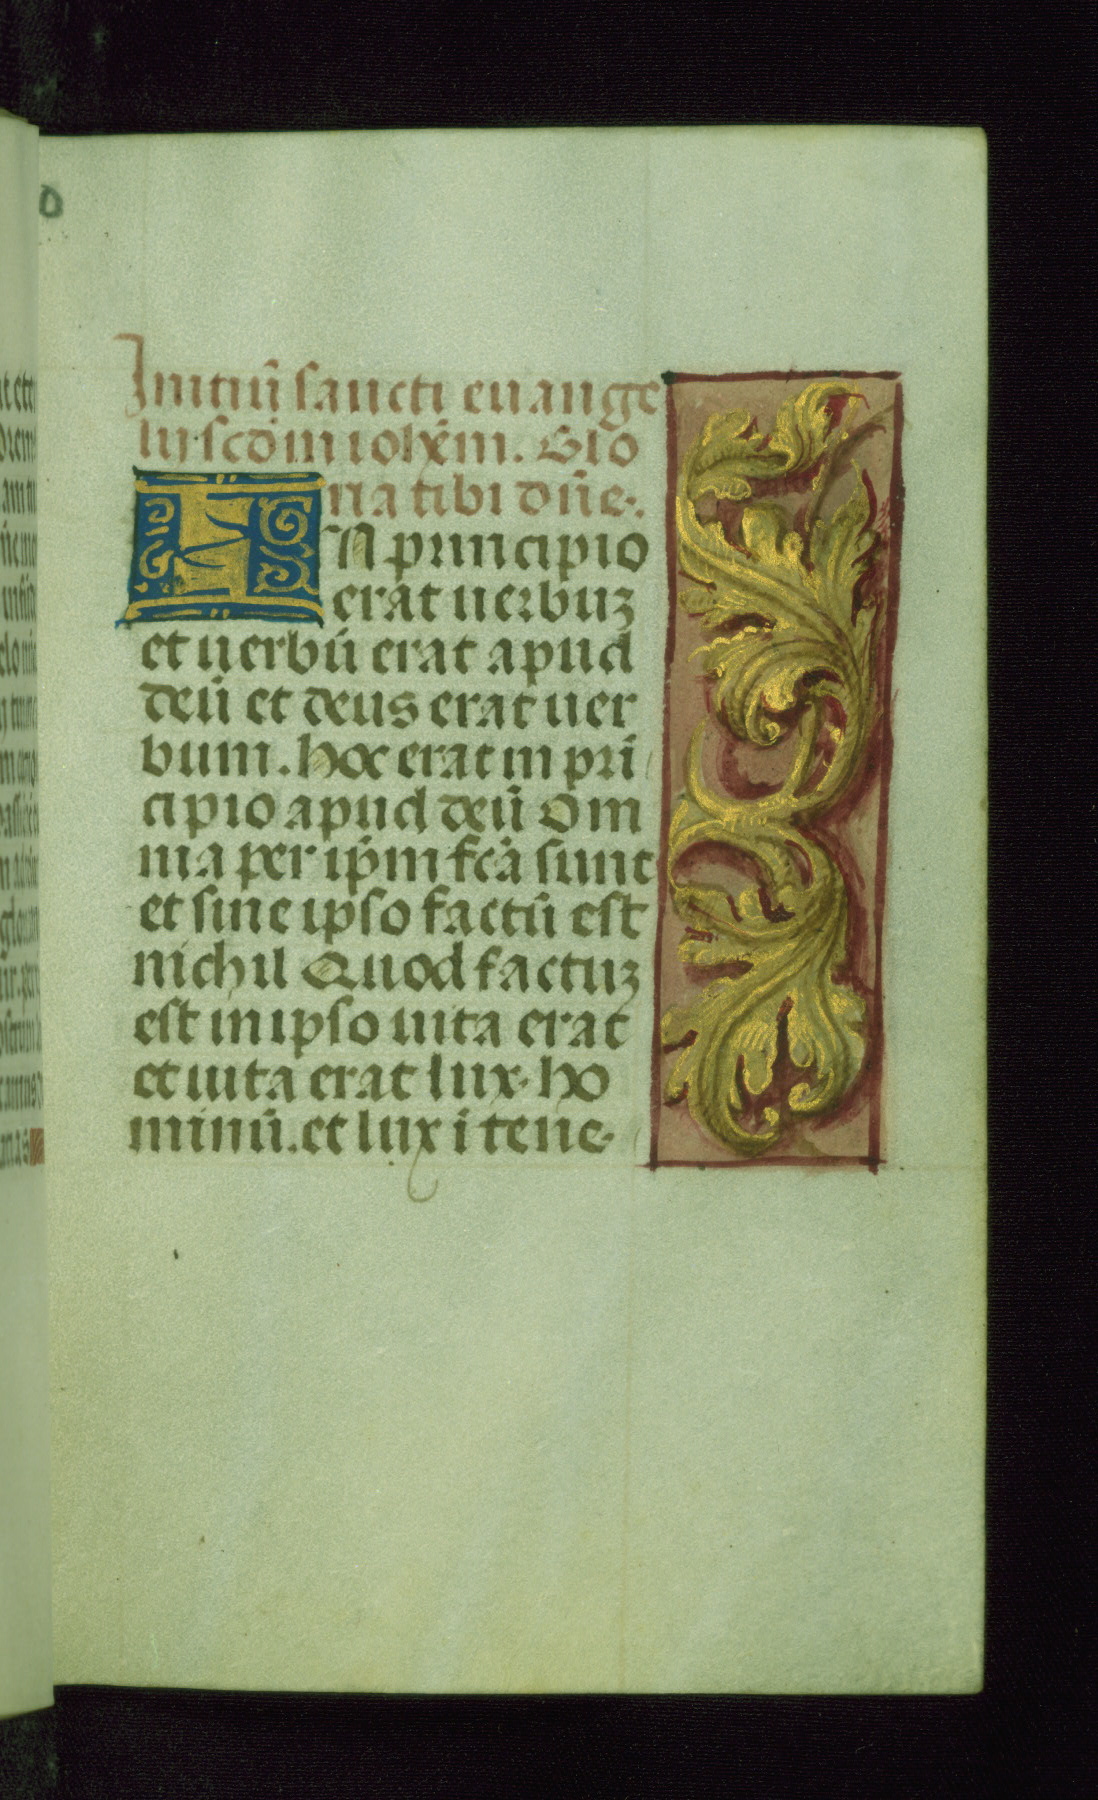 Initiū sancti euange
lij scd̄m iohēm. Glo
ria tibi dn̄e.
IN principio
erat uerbuꝫ
et uerbū erat apud
deū et deus erat uer
bum. hoc erat in pri
cipio apud deū Om
nia per ip̄m fcā sunt
et sine ipso factū est
nichil Quod factuꝫ
est in ipso uita erat
et uita erat lux. ho
minū. et lux ī tene